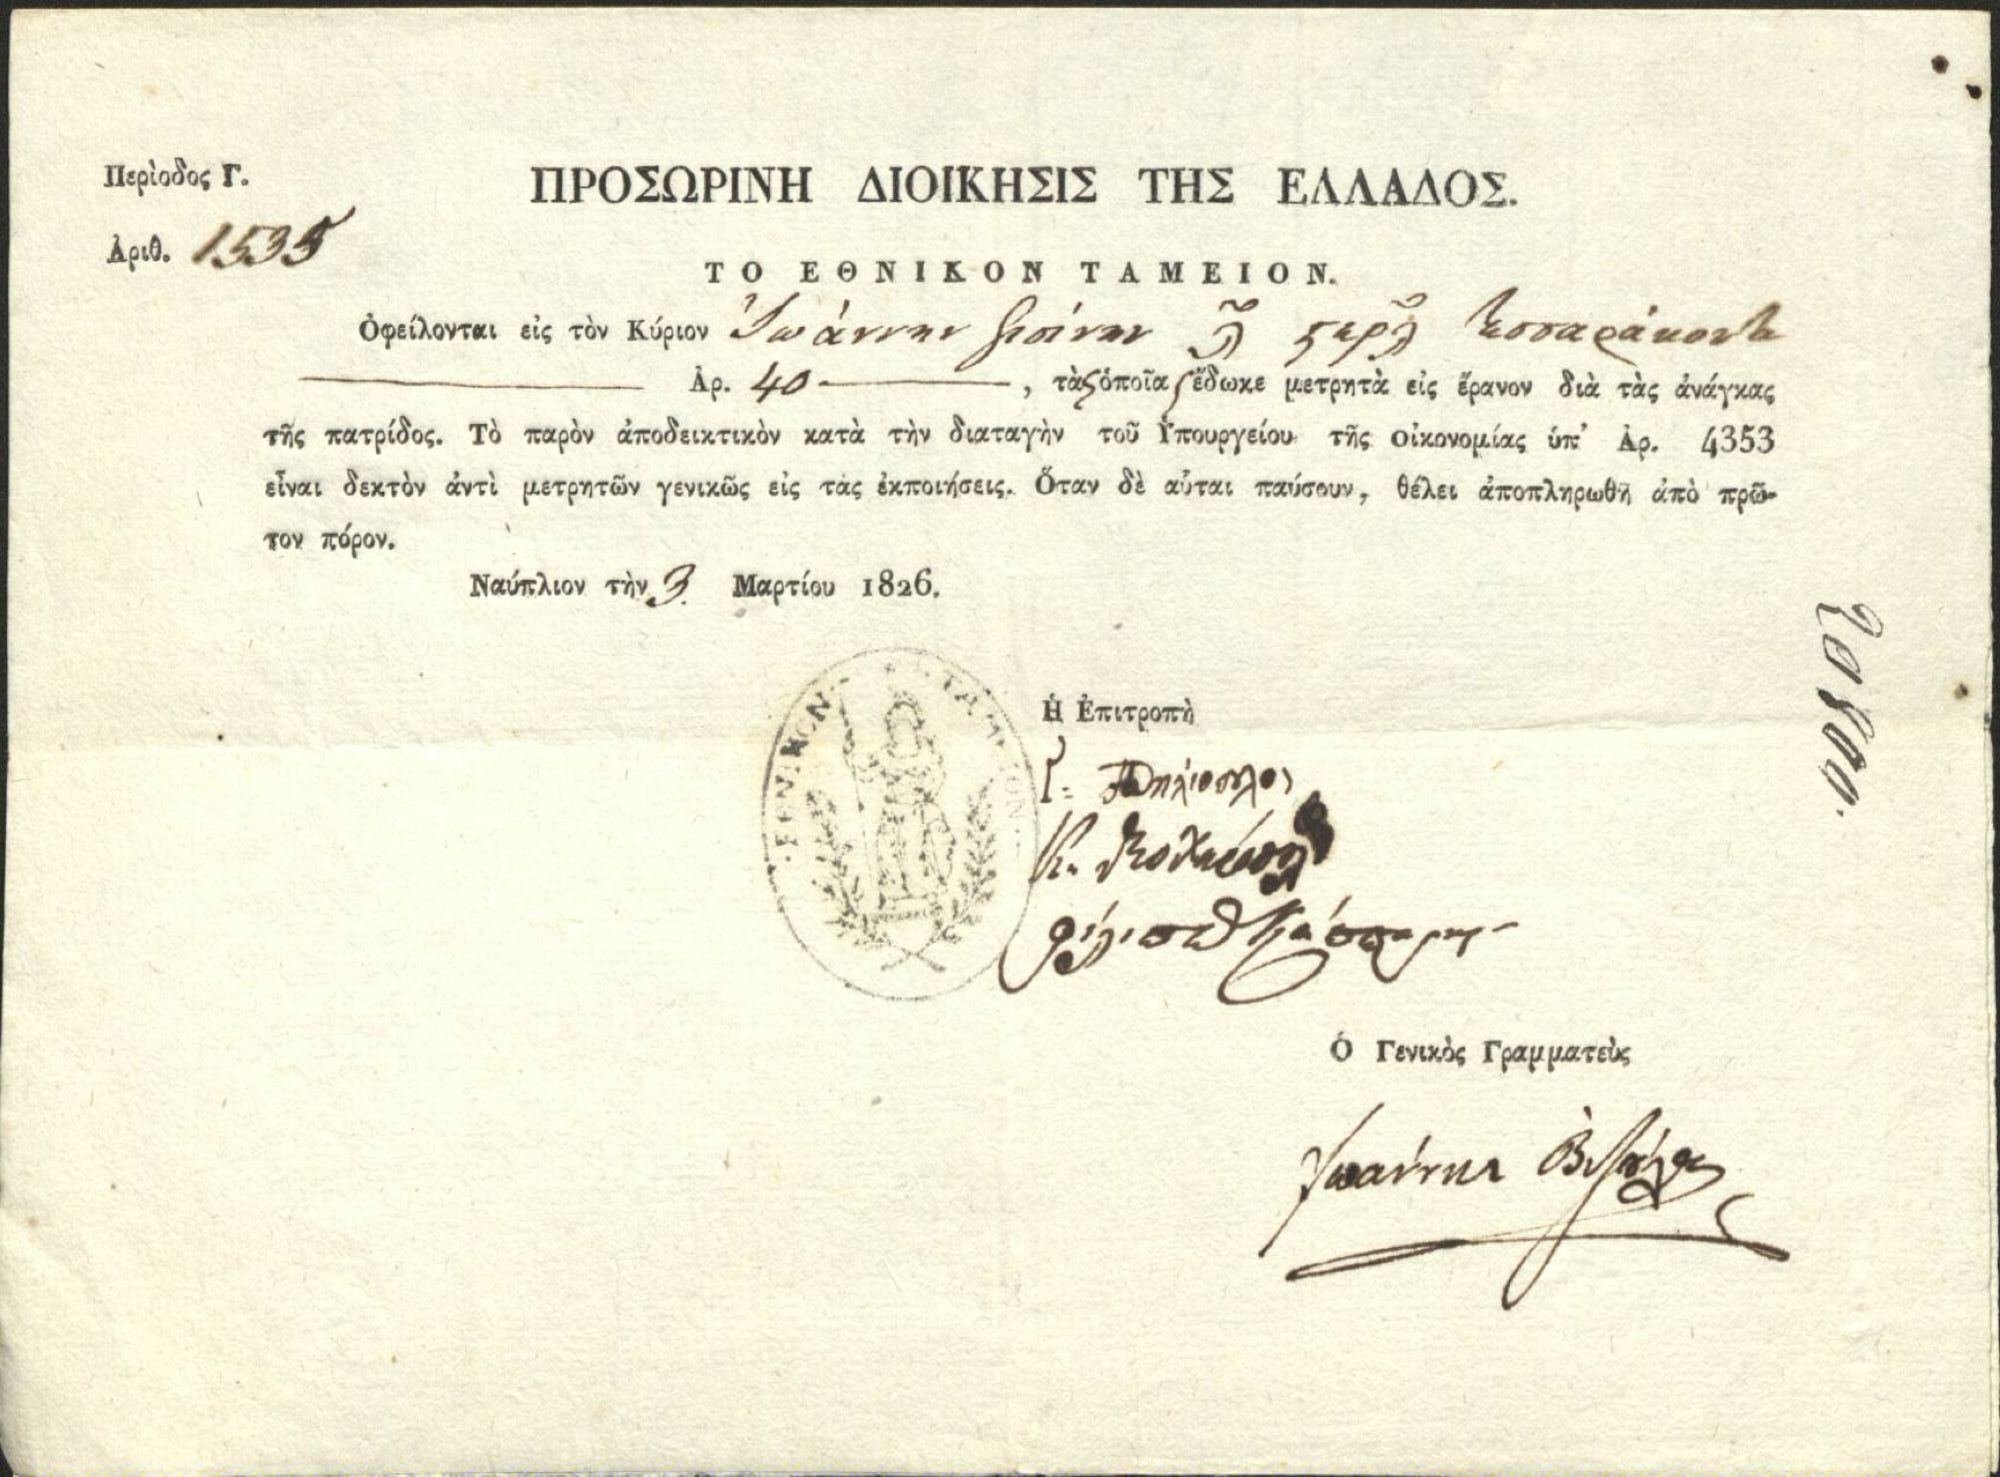 Περίοδος Γ.
ΠΡΟΣΩΡΙΝΗ ΔΙΟΙΚΗΣΙΣ ΤΗΣ ΕΛΛΑΔΟΣ.
Ἀριθ. 1535
ΤΟ ΕΘΝΙΚΟΝ ΤΑΜΕΙΟΝ.
Ὀφείλονται εἰς τὸν Κύριον Ἰωάννην τεσσαράκοντα
Ἀρ. 40 , τὰς ὁποῖας ἔδωκε μετρητὰ εἰς ἔρανον διὰ τὰς ἀνάγκας
τῆς πατρίδος. Τὸ παρὸν ἀποδεικτικὸν κατὰ τὴν διαταγὴν τοῦ Ὑπουργείου τῆς Οἰκονομίας ὑπ' Ἀρ. 4353
εἶναι δεκτὸν ἀντὶ μετρητῶν γενικῶς εἰς τὰς ἐκποιήσεις. Ὅταν δὲ αὗται παύσουν, θέλει ἀποπληρωθῆ ἀπὸ πρῶ-
τον πόρον.
Ναύπλιον τὴν 3 Μαρτίου 1826.
ΕΘΝΙΚΟΝ ΤΑΜΕΙΟΝ
Ἡ Ἐπιτροπὴ
Κ.
Ὁ Γενικὸς Γραμματεὺς
Ἰωάννης